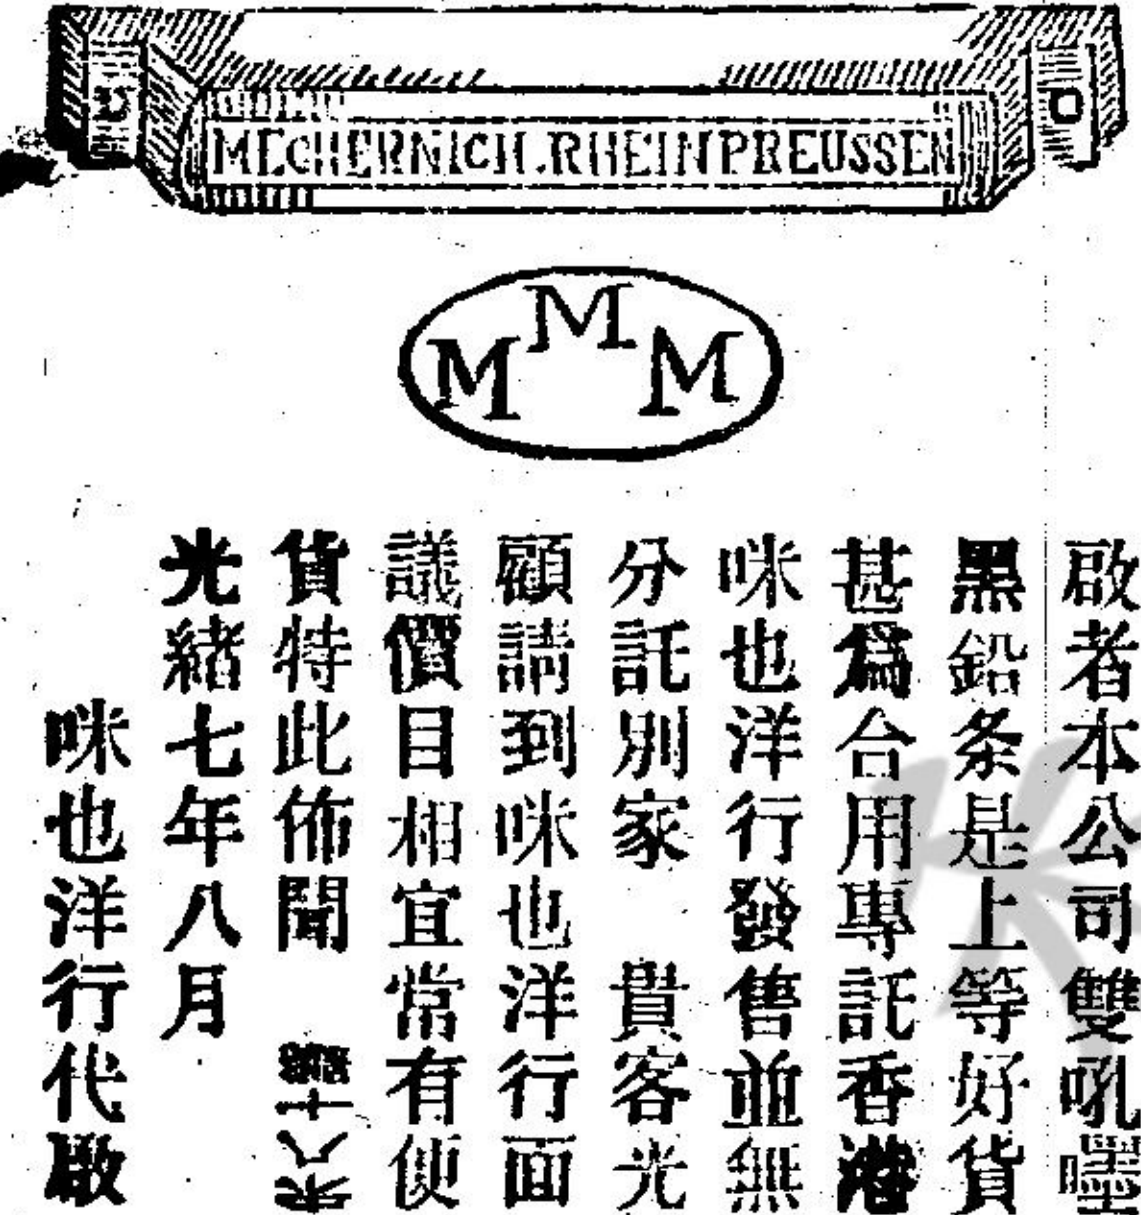 MECHERNICH.RHEINPREUSSEN
M M M
啟者本公司雙吼嚜
黑鉛条是上等好貨
甚爲合用專託香港
咪也洋行發售並無
分託別家 貴客光
顧請到咪也洋行面
議價目相宜常有便
貨特此佈聞
光緒七年八月
咪也洋行代啟